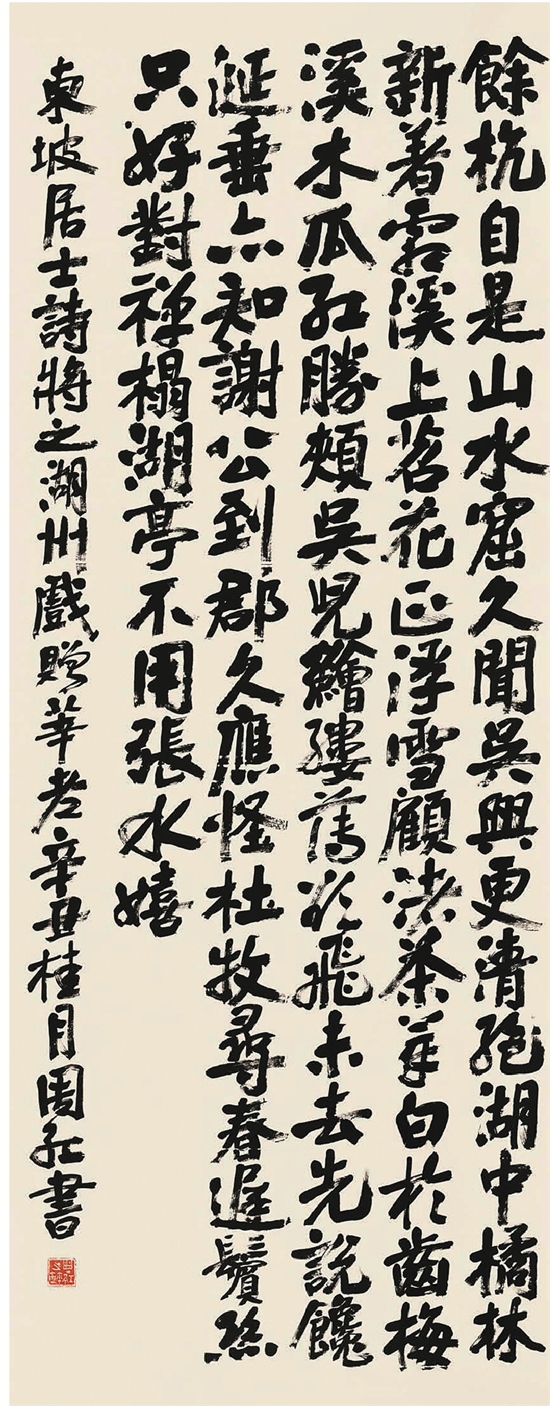 餘杭自是山水窟久聞吳興更清絕湖中橘林
新著霜溪上苕花正浮雪顧渚茶芽白於齒梅
溪木瓜紅勝頰吳兒鱠縷薄欲飛未去先說饞
涎垂亦知謝公到郡久應怪杜牧尋春遲鬢絲
只好對禪榻湖亭不用張水嬉
東坡居士詩將之湖州戲贈莘老辛丑桂月周紅書